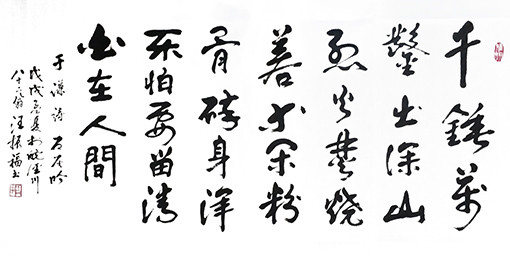 千錘萬
鑿出深山
烈火焚燒
若等閑粉
骨碎身渾
不怕要留清
白在人間
于謙詩 石灰吟
戊戌夏於川
八十翁汪振福書